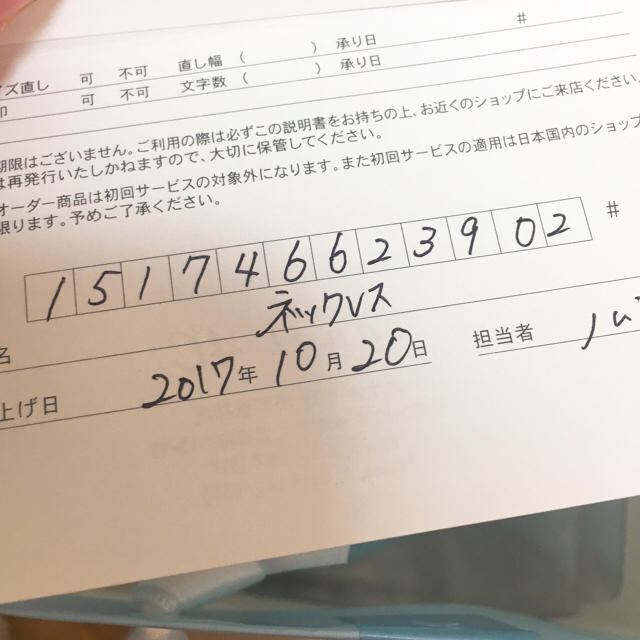 イズ直し 可 不可 直し幅 ( ) 承り日 #
印 可 不可 文字数 ( ) 承り日
期限はございません。ご利用の際は必ずこの説明書をお持ちの上、お近くのショップにご来店ください。
は再発行いたしかねますので、大切に保管してください。
オーダー商品は初回サービスの対象外になります。また初回サービスの適用は日本国内のショップ
限ります。予めご了承ください。
151746623902 #
名 ネックレス
上げ日 2017年10月20日 担当者